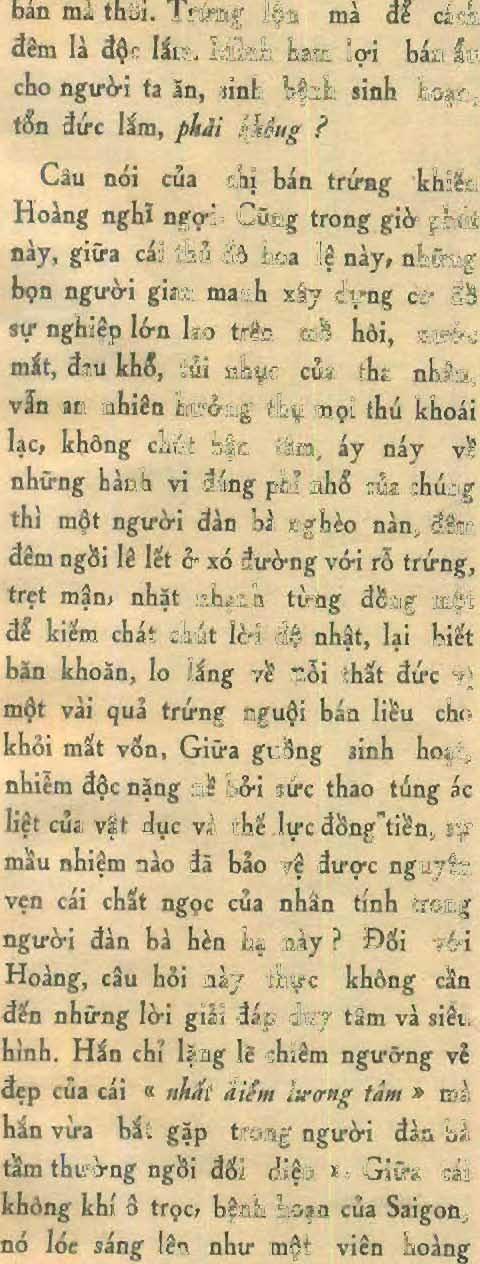 bán mà thôi. Trứng lộn mà để cách
đêm là độc lắm. Mình ham lợi bán ẩu
cho người ta ăn, sinh bệnh sinh hoạn,
tổn đức lắm, phải không ?
Câu nói của chị bán trứng khiến
Hoàng nghĩ ngợi. Cũng trong giờ phút
này, giữa cái thủ đô hoa lệ này, những
bọn người gian manh xây dựng cơ đồ
sự nghiệp lớn lao trên mồ hòi, nước
mắt, đau khổ, tủi nhục của tha nhân,
vẫn an nhiên hưởng thụ mọi thú khoái
lạc, không chút bận tâm, áy náy về
những hành vi đáng phỉ nhổ của chúng
thì một người đàn bà nghèo nàn, đêm
đêm ngồi lê lết ở xó đường với rổ trứng,
trẹt mận, nhặt nhạnh từng đồng một
để kiếm chát chút lời độ nhật, lại biết
băn khoăn, lo lắng về nỗi thất đức vì
một vài quả trứng nguội bán liều cho
khỏi mất vốn, Giữa guồng sinh hoạt,
nhiễm độc nặng nề bởi sức thao túng ác
liệt của vật dục và thế lực đồng tiền, sự
mầu nhiệm nào đã bảo vệ được nguyên
vẹn cái chất ngọc của nhân tính trong
người đàn bà hèn hạ này ? Đối với
Hoàng, câu hỏi này thực không cần
đến những lời giải đáp duy tâm và siêu
hình. Hắn chỉ lặng lẽ chiêm ngưỡng vẻ
đẹp của cái « nhất điểm lương tâm » mà
hắn vừa bắt gặp trong người đàn bà
tầm thường ngồi đối diện ». Giữa cái
không khí ô trọc, bệnh hoạn của Saigon,
nó lóe sáng lên như một viên hoàng